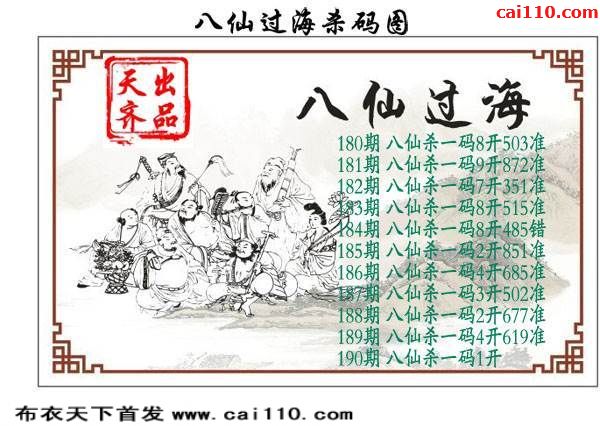 cai110.com
八仙过海杀码图
天齐出品
八仙过海
180期 八仙杀一码8开503准
181期 八仙杀一码9开872准
182期 八仙杀一码7开351准
183期 八仙杀一码8开515准
184期 八仙杀一码8开485错
185期 八仙杀一码2开851准
186期 八仙杀一码4开685准
187期 八仙杀一码3开502准
188期 八仙杀一码2开677准
189期 八仙杀一码4开619准
190期 八仙杀一码1开
布衣天下首发 www.cai110.com